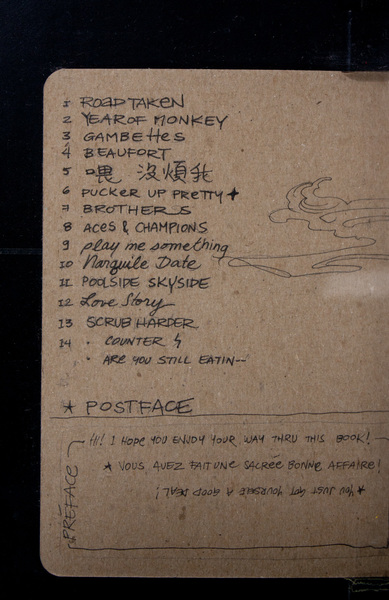 1 ROAD TAKEN
2 YEAR OF MONKEY
3 GAMBEttes
4 BEAUFORT
5 喂 沒煩我
6 PUCKER UP PRETTY ✦
7 BROTHERS
8 ACES & CHAMPIONS
9 play me something
10 Narquile Date
11 POOLSIDE SKYSIDE
12 Love Story
13 SCRUB HARDER
14 • COUNTER ϟ
• ARE YOU STILL EATIN--
★ POSTFACE
PRÉFACE
HI! I HOPE YOU ENJOY YOUR WAY THRU THIS BOOK!
★ VOUS AVEZ FAIT UNE SACRÉE BONNE AFFAIRE!
★ YOU JUST GOT YOURSELF A GOOD DEAL!